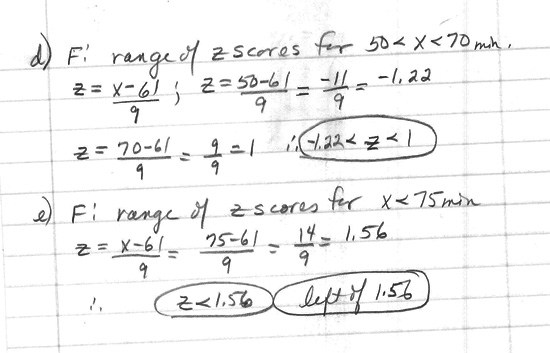 d) F: range of z scores for 50 < X < 70 min.
z = X-61/9 ; z = 50-61/9 = -11/9 = -1.22
z = 70-61/9 = 9/9 = 1 ∴ -1.22 < z < 1
e) F: range of z scores for X < 75 min
z = X-61/9 = 75-61/9 = 14/9 = 1.56
∴ z < 1.56 left of 1.56